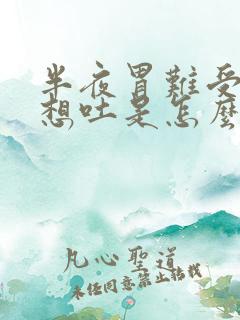 半夜胃難受
想吐是怎麼
凡心聖道
未经同意禁止转载